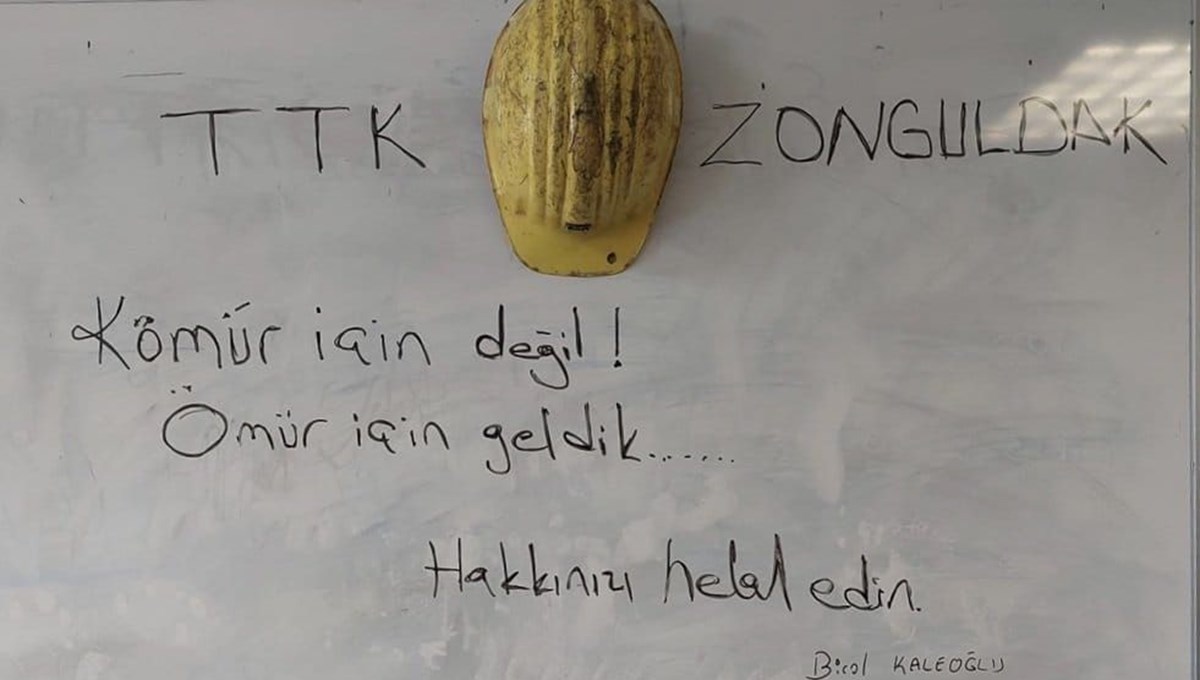 TTK ZONGULDAK
Kömür için değil!
Ömür için geldik.......
Hakkınızı helal edin.
Birol KALEOĞLU